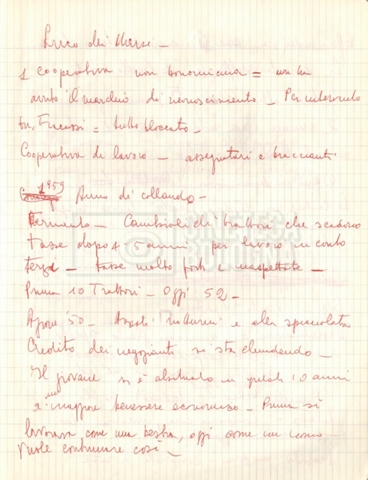 Luco dei Marsi -
1 cooperativa non bonomiana = non ha
avuto il marchio di riconoscimento - Per intervento
= tutto bloccato -
Cooperativa di lavoro - assegnatari e braccianti
1959 Anno di collaudo -
Fermento - Cambiali di trattori che scadono
Tasse dopo 5 anni per lavoro in conto
terzi - tasse molto forti e inaspettate -
Prima 10 Trattori - Oggi 52 -
e alla spicciolata
Credito dei negozianti si sta chiudendo -
Il giovane si è abituato in questi 10 anni
a maggiore benessere economico - Prima si
lavorava come una bestia, oggi come un uomo
vuole continuare così -